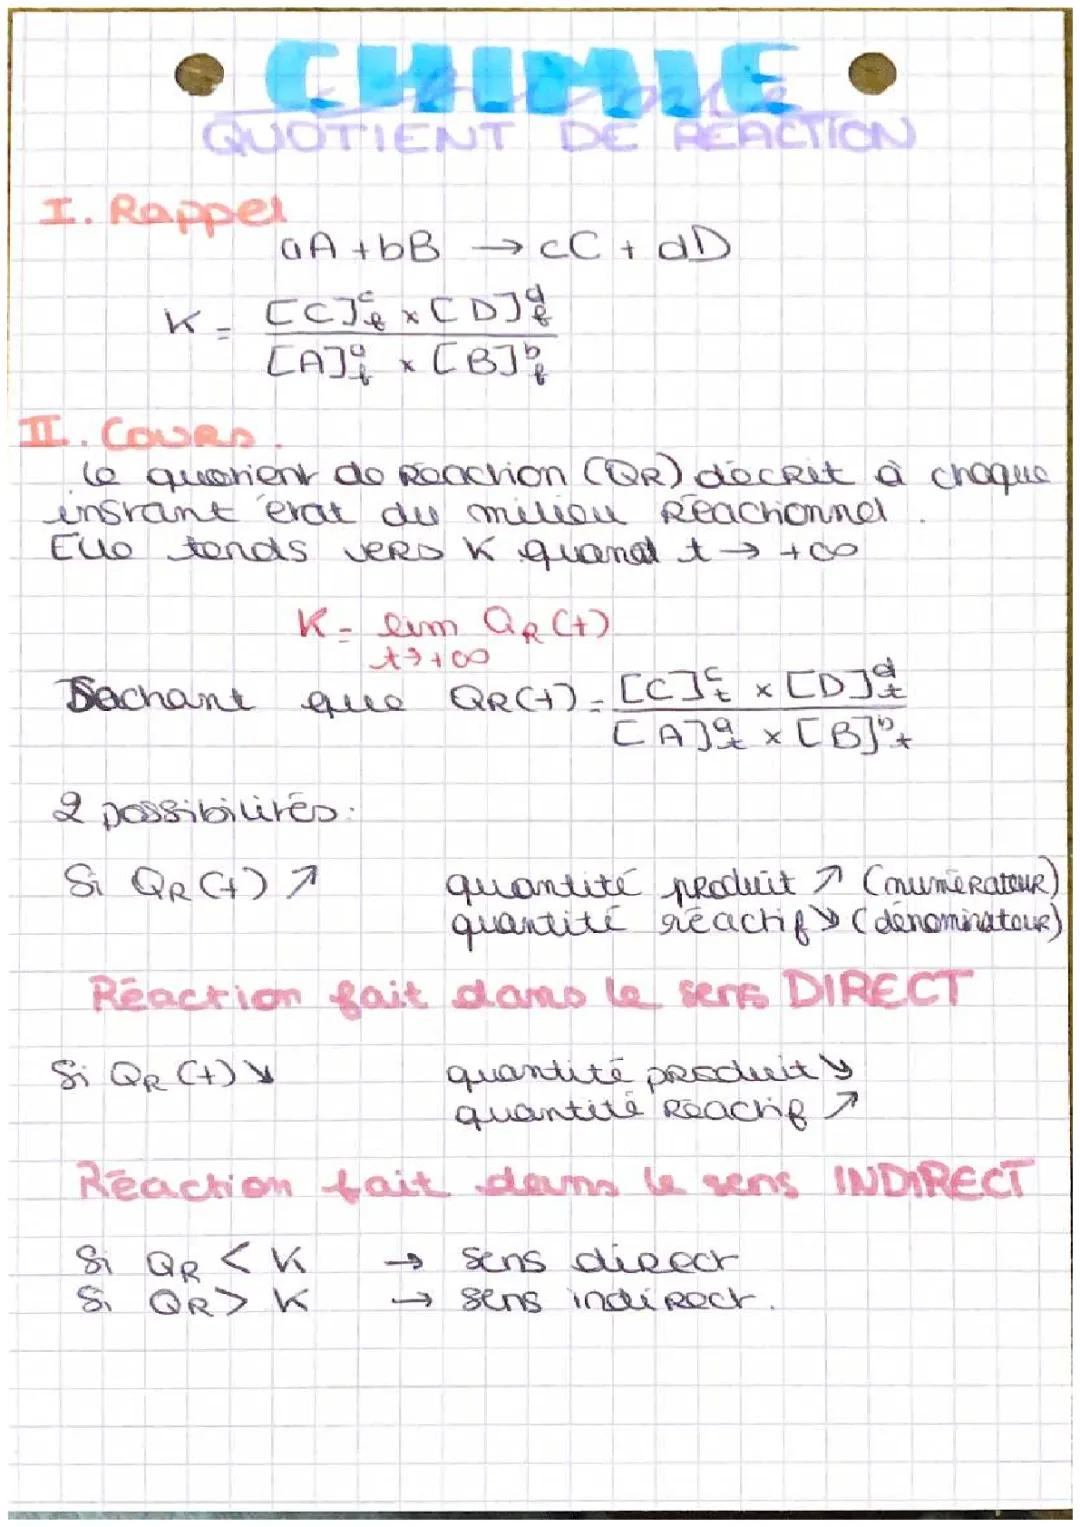 CHIMIE
QUOTIENT DE REACTION
I. Rappel
aA + bB → cC + dD
K = [C]ᶜf × [D]ᵈf
[A]ᵃf × [B]ᵇf
II. Cours.
le quotient de Réaction (QR) décrit à chaque
instant état du milieu Réactionnel.
Elle tends vers K quand t → +∞
K = lim QR (t)
t→+∞
Sachant que QR(t) = [C]ᶜt × [D]ᵈt
[A]ᵃt × [B]ᵇt
2 possibilités:
Si QR (t) ↗ quantité produit ↗ (numérateur)
quantité réactif ↘ (dénominateur)
Réaction fait dans le sens DIRECT
Si QR (t) ↘ quantité produit ↘
quantité Réactif ↗
Réaction fait dans le sens INDIRECT
Si QR < K → sens direct
Si QR > K → sens indirect.